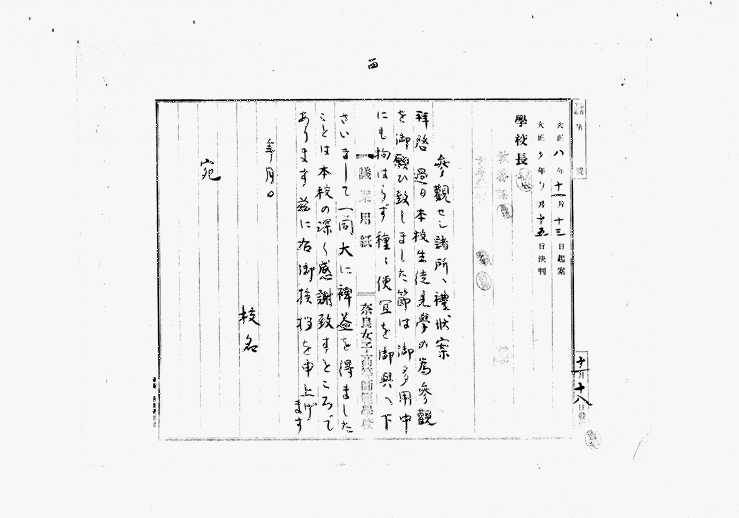 四
第 號
大正八年十一月十三日起案
大正 年 月十五日決判
學校長
參觀セシ諸所ヘ禮狀案
拜啓 過日本校生徒見學の為參觀
を御願ひ致しました節は御多用中
にも拘はらず種々便宜を御與へ下
さいまして一同大に裨益を得ました
ことは本校の深く感謝致すところで
あります茲に右御挨拶を申上げ
ます
年月日
校名
宛
議案用紙
奈良女子高等師範學校
十一月十八日發